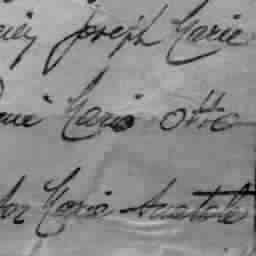 Joseph Marie
Marie Otto
Marie Anatole